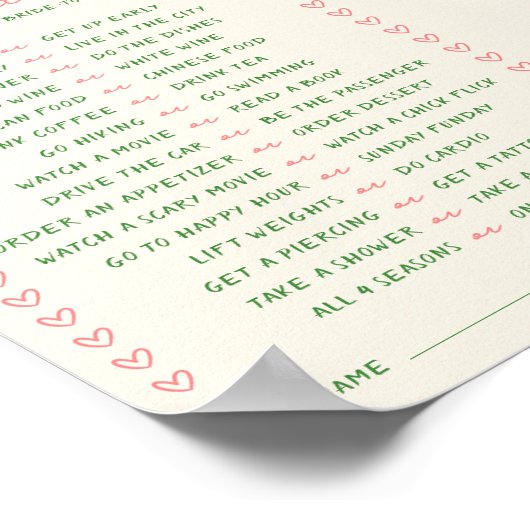 BRIDE-TO
or GET UP EARLY
or LIVE IN THE CITY
or DO THE DISHES
WINE or WHITE WINE
FOOD or CHINESE FOOD
COFFEE or DRINK TEA
GO HIKING or GO SWIMMING
WATCH A MOVIE or READ A BOOK
DRIVE THE CAR or BE THE PASSENGER
ORDER AN APPETIZER or ORDER DESSERT
WATCH A SCARY MOVIE or WATCH A CHICK FLICK
GO TO HAPPY HOUR or SUNDAY FUNDAY
LIFT WEIGHTS or DO CARDIO
GET A PIERCING or GET A TATT
TAKE A SHOWER or TAKE A
ALL 4 SEASONS or ON
AME